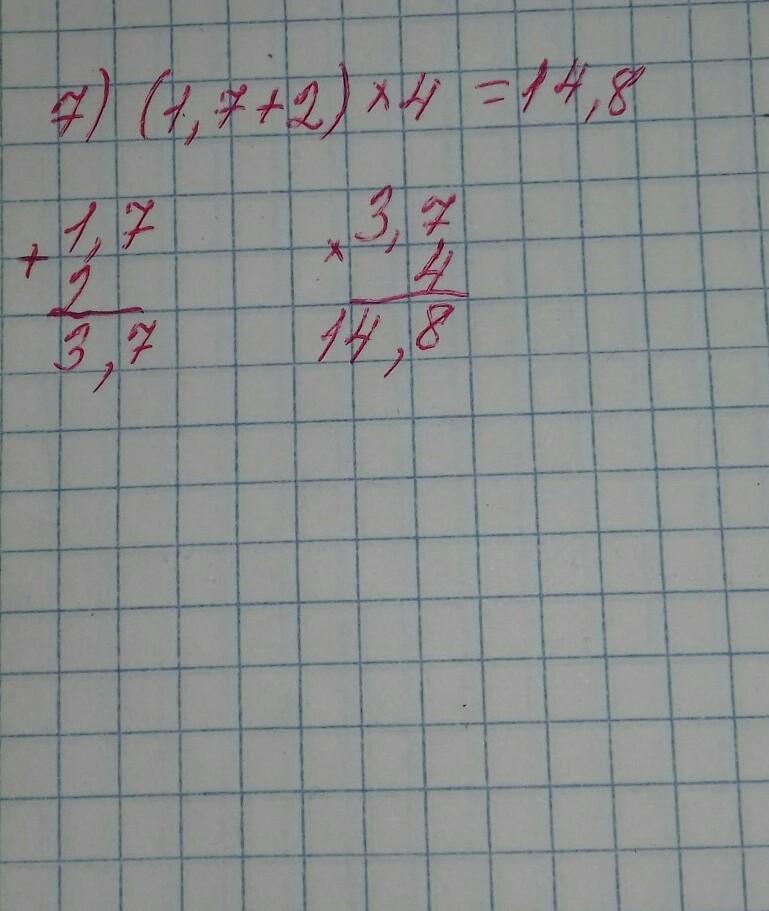 7) (1,7+2)×4 =14,8
+ 1,7
2
3,7
× 3,7
4
14,8